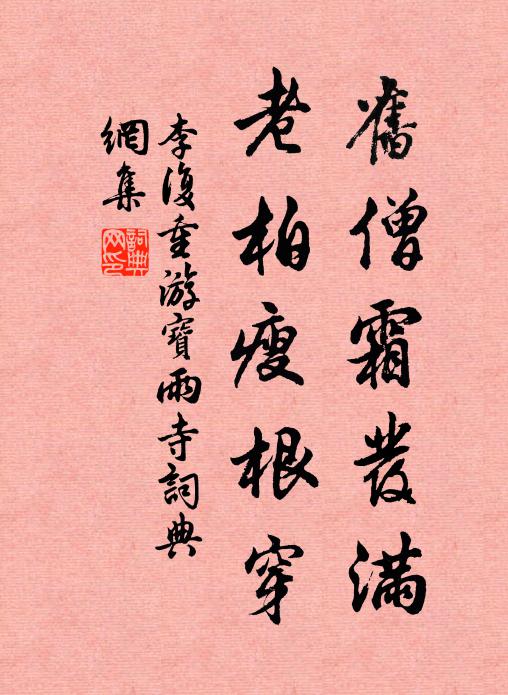 舊僧霜發滿
老柏瘦根穿
李復重游寶雨寺詞典
網集
詞典網印